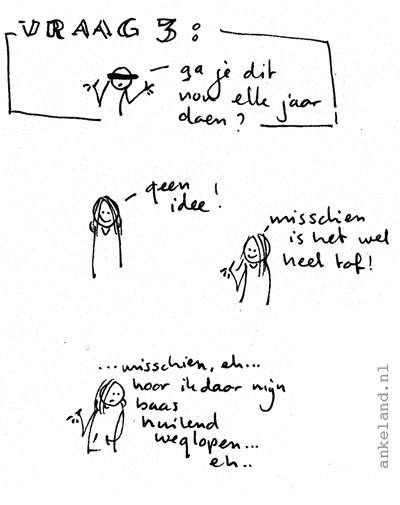 VRAAG 3:
ga je dit
nou elk jaar
doen?
geen
idee!
misschien
is het wel
heel tof!
...misschien, eh...
hoor ik daar mijn
baas
huilend
weglopen...
eh..
ankeland.nl